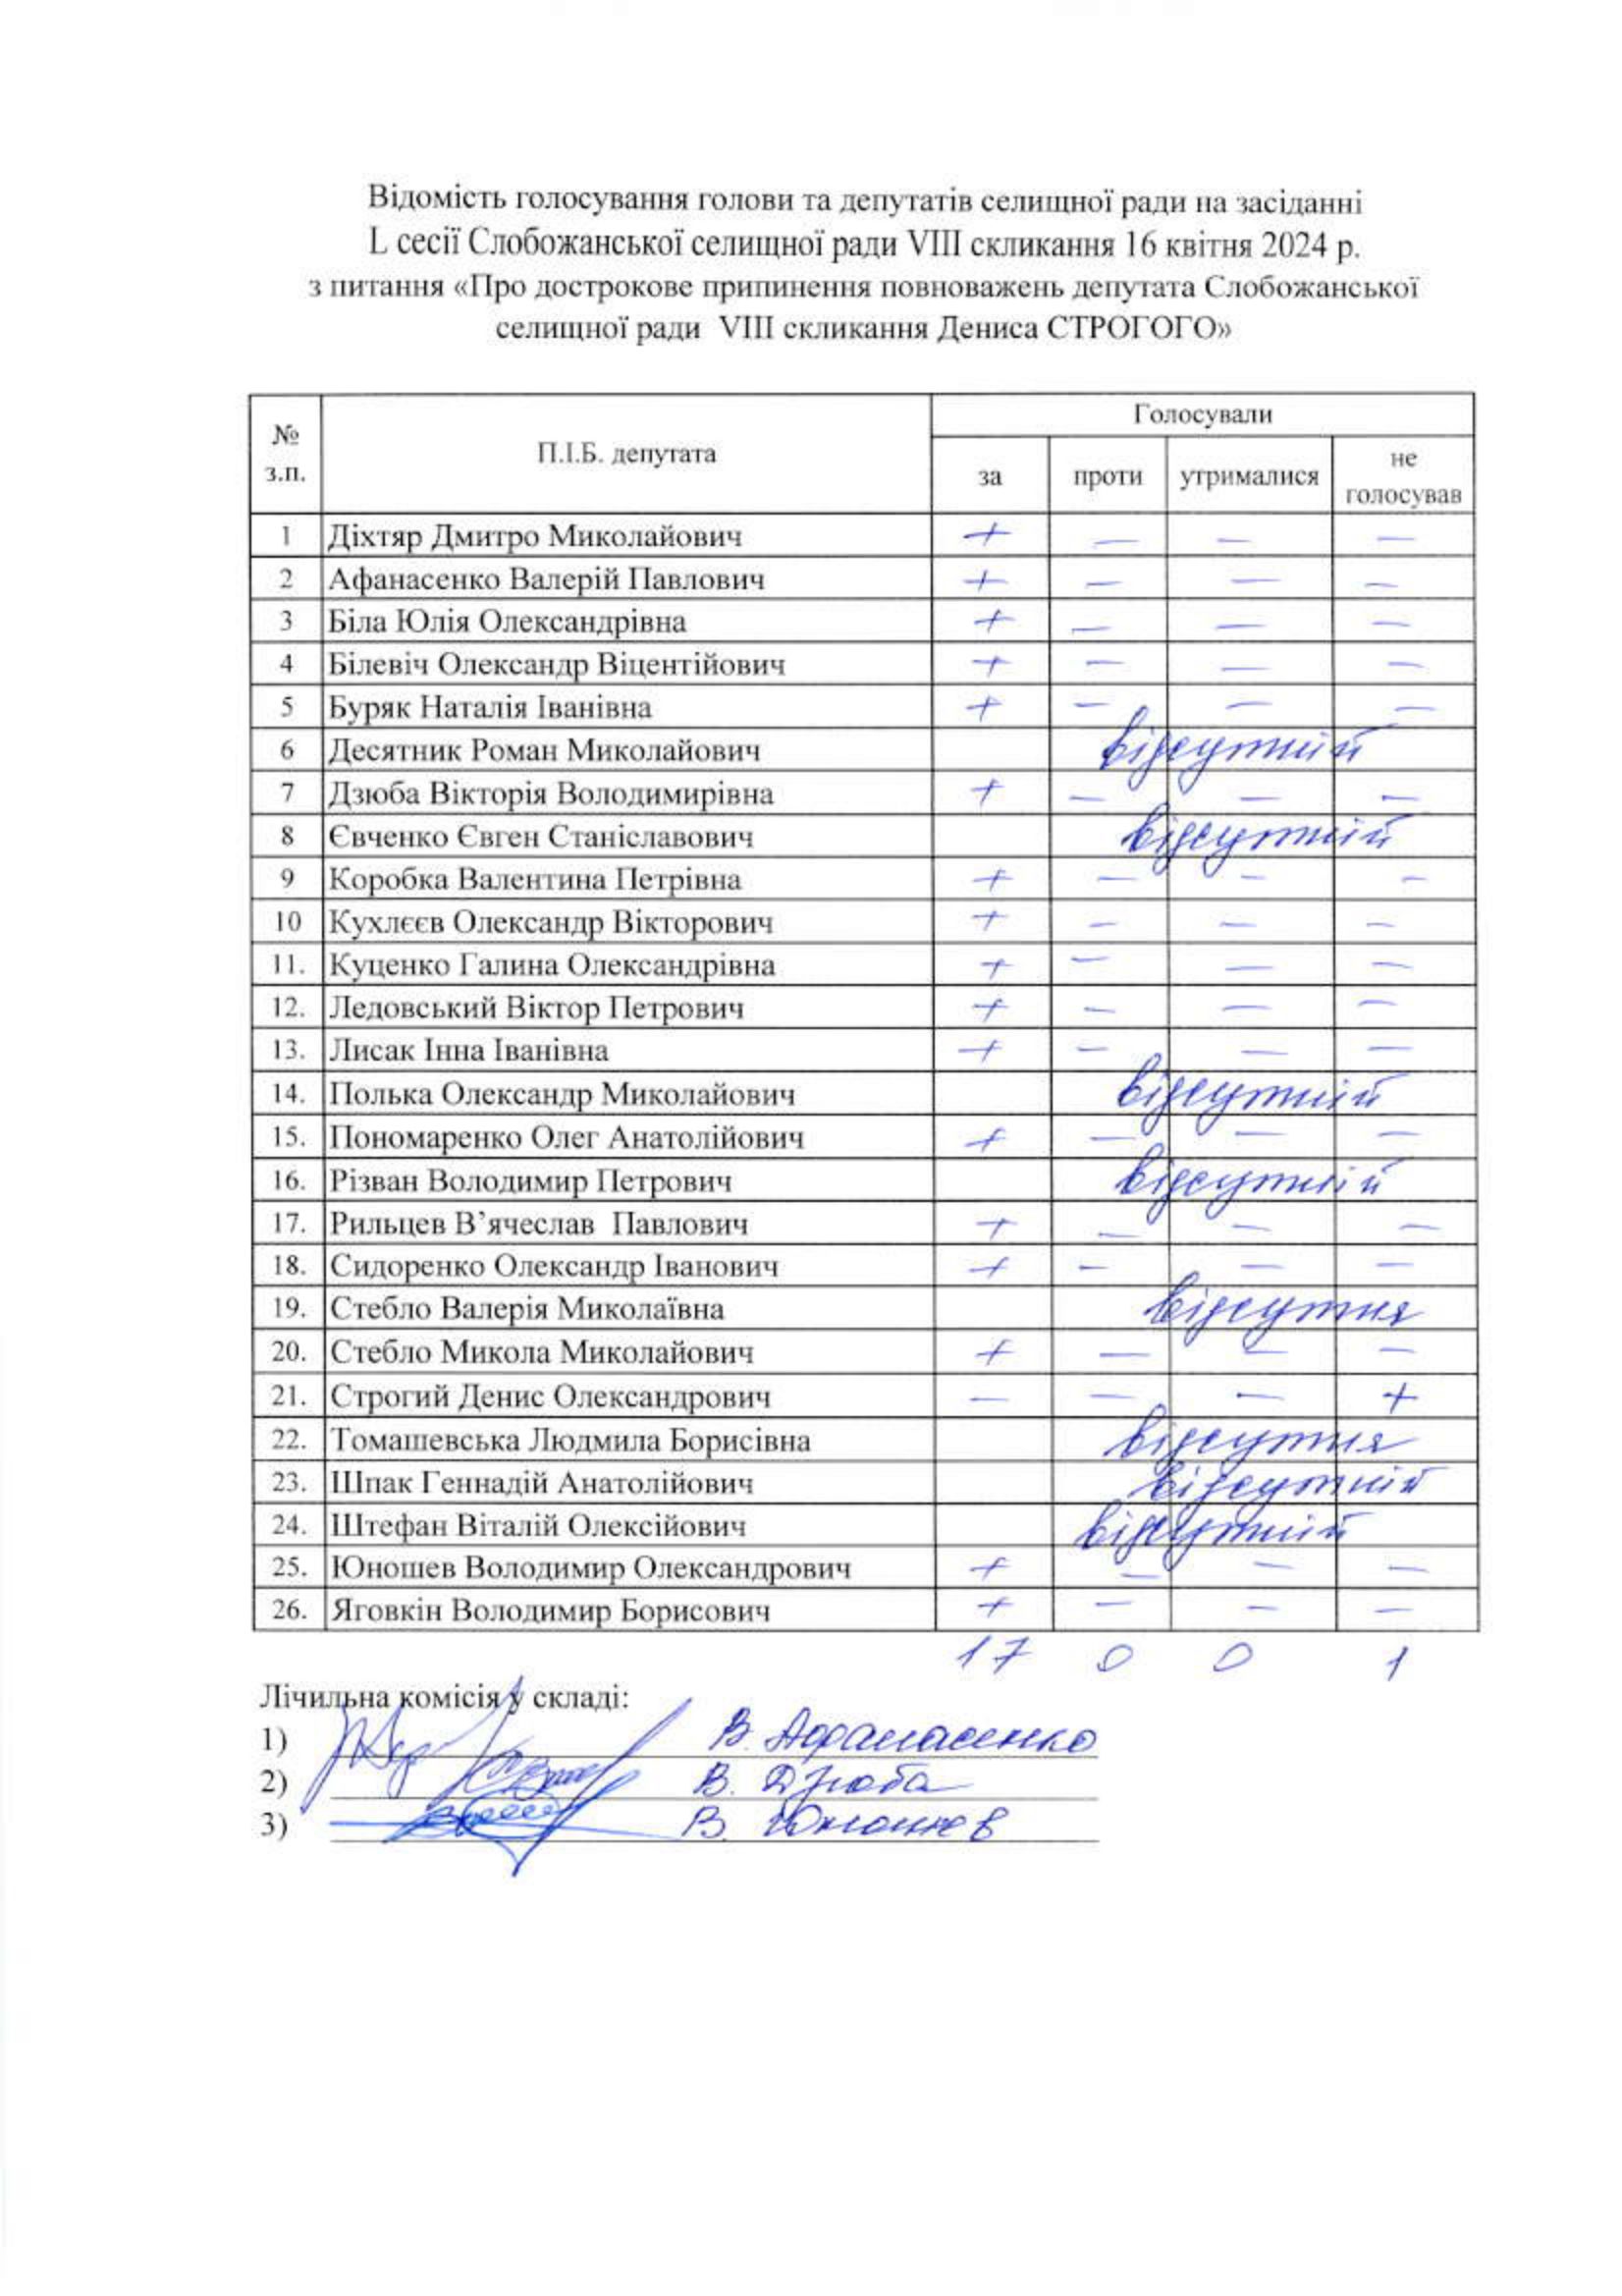 Відомість голосування голови та депутатів селищної ради на засіданні
L сесії Слобожанської селищної ради VIII скликання 16 квітня 2024 р.
з питання «Про дострокове припинення повноважень депутата Слобожанської
селищної ради VIII скликання Дениса СТРОГОГО»
№ з.п. П.І.Б. депутата Голосували
за проти утрималися не голосував
1 Діхтяр Дмитро Миколайович + — — —
2 Афанасенко Валерій Павлович + — — —
3 Біла Юлія Олександрівна + — — —
4 Білевіч Олександр Віцентійович + — — —
5 Буряк Наталія Іванівна + — — —
6 Десятник Роман Миколайович відсутній
7 Дзюба Вікторія Володимирівна + — — —
8 Євченко Євген Станіславович відсутній
9 Коробка Валентина Петрівна + — — —
10 Кухлєєв Олександр Вікторович + — — —
11. Куценко Галина Олександрівна + — — —
12. Ледовський Віктор Петрович + — — —
13. Лисак Інна Іванівна + — — —
14. Полька Олександр Миколайович відсутній
15. Пономаренко Олег Анатолійович + — — —
16. Різван Володимир Петрович відсутній
17. Рильцев В’ячеслав Павлович + — — —
18. Сидоренко Олександр Іванович + — — —
19. Стебло Валерія Миколаївна відсутня
20. Стебло Микола Миколайович + — — —
21. Строгий Денис Олександрович — — — +
22. Томашевська Людмила Борисівна відсутня
23. Шпак Геннадій Анатолійович відсутній
24. Штефан Віталій Олексійович відсутній
25. Юношев Володимир Олександрович + — — —
26. Яговкін Володимир Борисович + — — —
17 0 0 1
Лічильна комісія у складі:
1) В. Афанасенко
2) В. Дзюба
3) В. Юношев